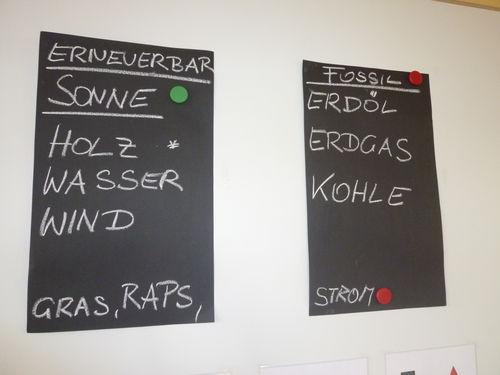 ERNEUERBAR
SONNE
HOLZ *
WASSER
WIND
GRAS, RAPS,
FOSSIL
ERDÖL
ERDGAS
KOHLE
STROM